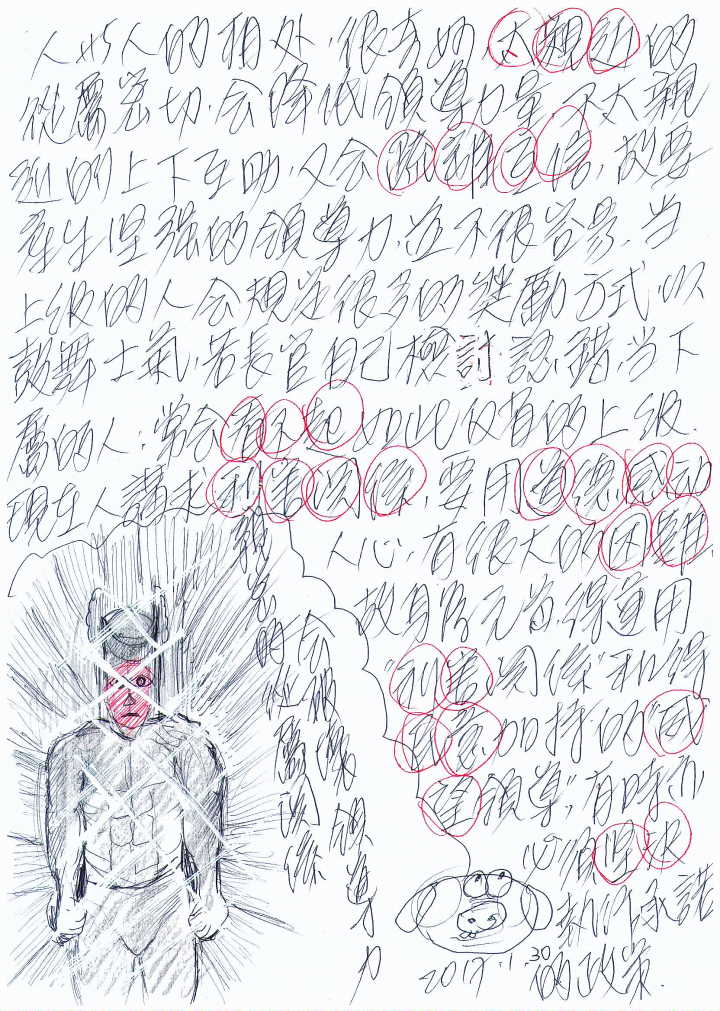 人與人的相处,很奇妙,太親近的
從屬密切,会降低領導力量,不太親
近的上下互助,又会 互信,故要
產生坚强的領導力,並不很容易,当
上級的人会規定很多的獎勵方式,以
鼓舞士氣,若長官自己檢討認錯,当下
屬的人,常会看不起如此仪省的上級.
現在人講求利害関係,要用道德感动
人心,有很大的困難,
故身為 ,得運用
"利害関係"和得
自 加持的"威
望領導",有時亦
必須坚決
執行承諾
的政策.
親密的
会 
從屬関係
領導力
2017.1.30